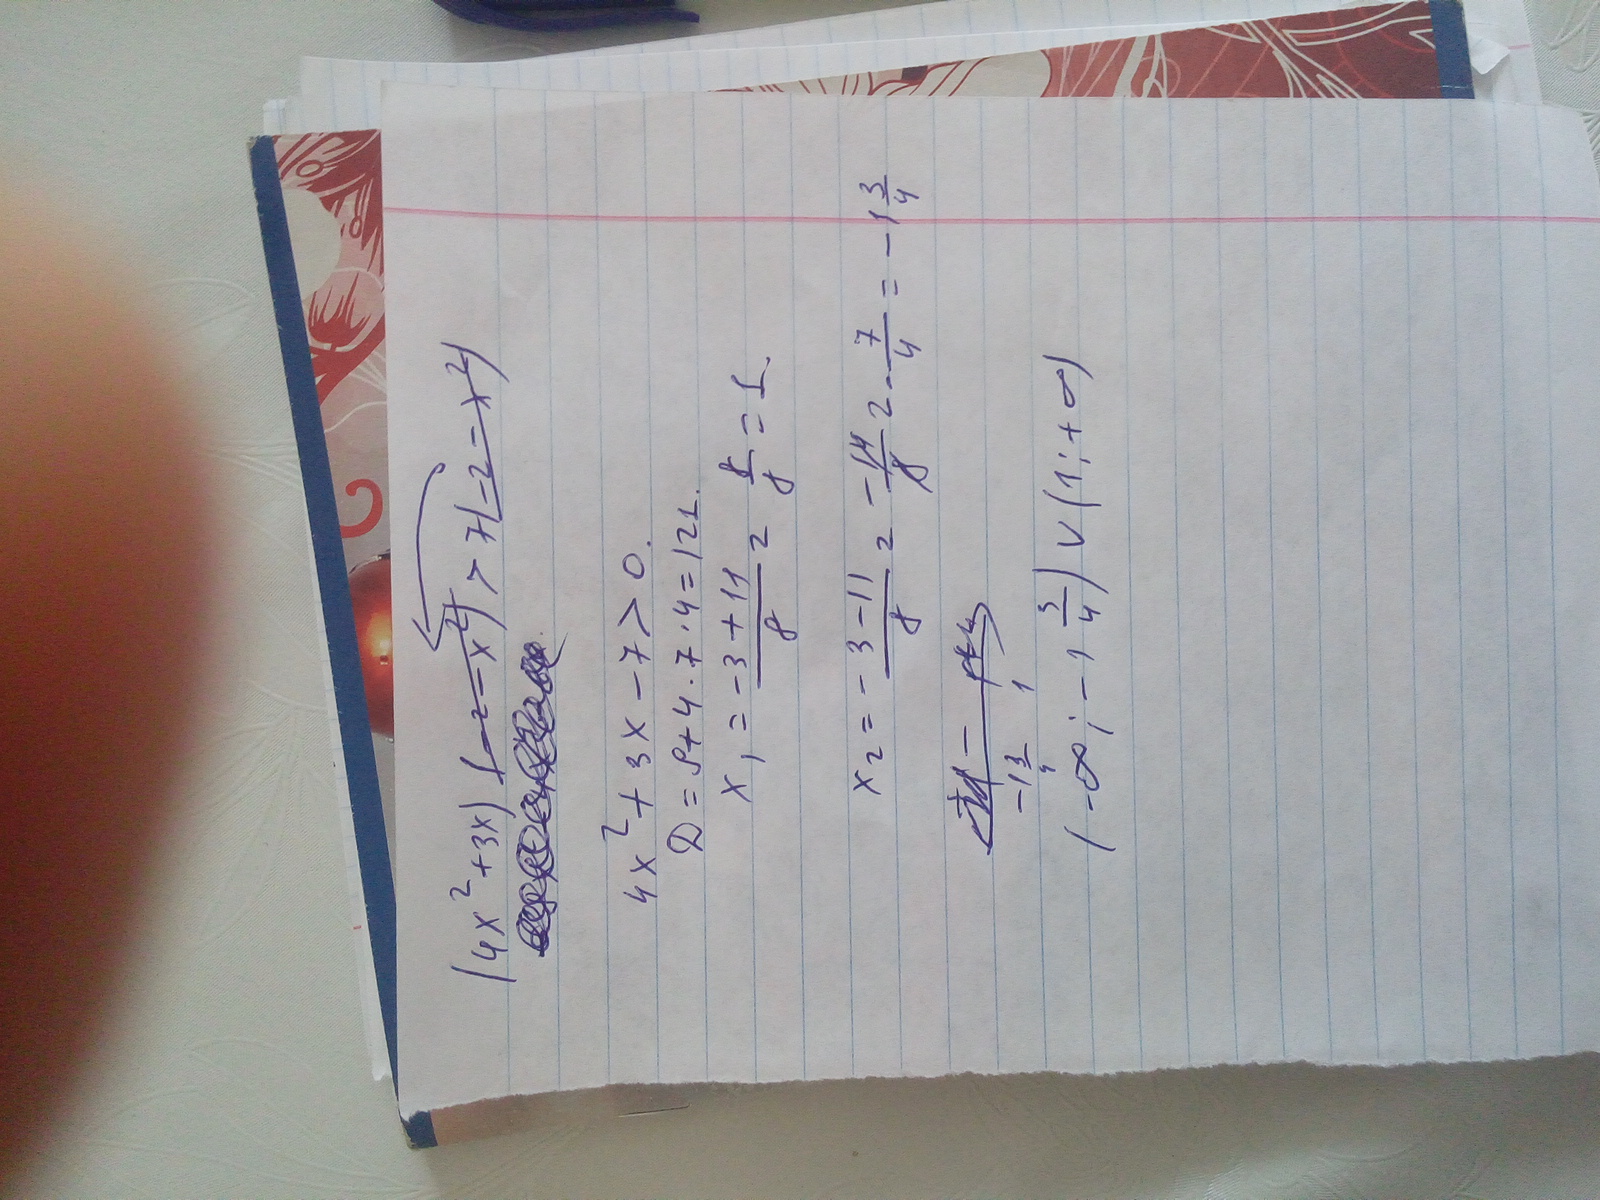 (4x² + 3x) (-2-x²) > 7(-2-x²)
4x² + 3x - 7 > 0.
D = 9 + 4·7·4 = 121.
x₁ = -3+11/8 = 8/8 = 1.
x₂ = -3-11/8 = -14/8 = -7/4 = -1 3/4
-1 3/4 1
(-∞; -1 3/4) ∨ (1; +∞)